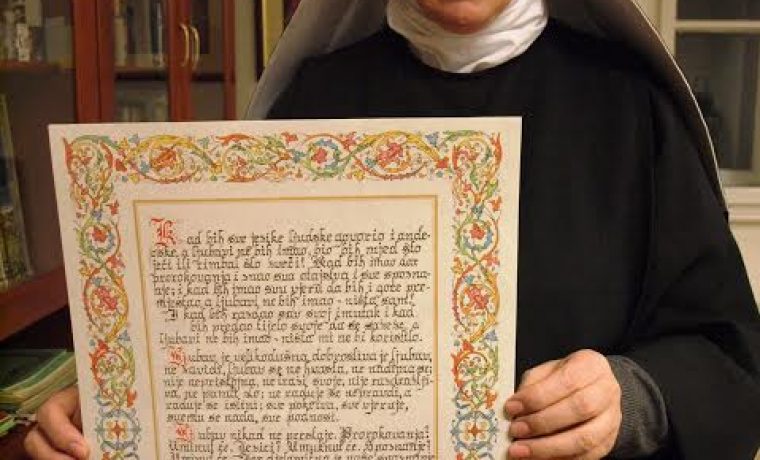 Kad bih sve jezike ljudske govorio i anđe-
oske, a ljubavi ne bih imao, bio bih mjed što
ječi ili cimbal što zveči! Kad bih imao dar
prorokovanja i znao sva otajstva i sve spozna-
nje; i kad bih imao svu vjeru da bih i gore pre-
mještao a ljubavi ne bih imao - ništa sam!
I kad bih razdao sav svoj imutak i kad
bih predao tijelo svoje da se sažeže, a
ljubavi ne bih imao - ništa mi ne bi koristilo.
Ljubav je velikodušna, dobrostiva je ljubav,
ne zavidi, ljubav se ne hvasta, ne nadima se;
nije nepristojna, ne traži svoje, nije razdražlji-
va, ne pamti zlo; ne raduje se nepravdi, a
raduje se istini; sve pokriva, sve vjeruje,
svemu se nada, sve podnosi.
Ljubav nikad ne prestaje. Prorokovanja?
Uminut će. Jezici? Umuknut će. Spoznanje?